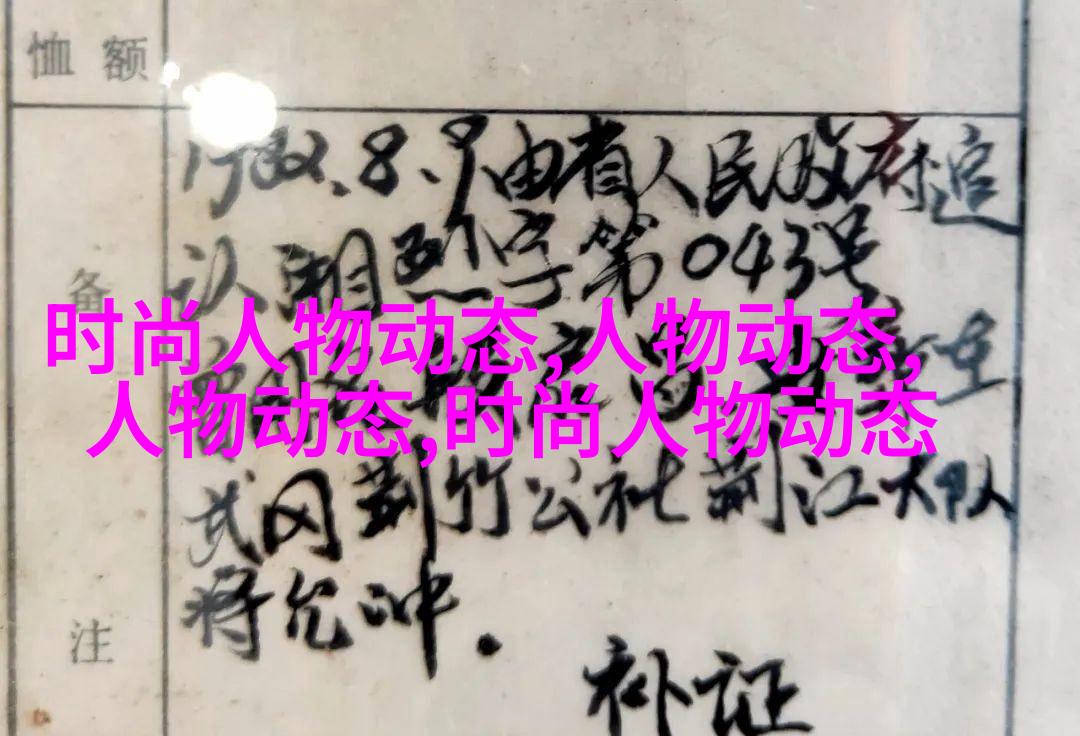 恤额
备
注
1982.8.9由省人民政府追
认湘烈字第043号
时尚人物动态,人物动态,
人物动态,时尚人物动态
武冈荆竹公社荆江大队
蒋允冲.
补证